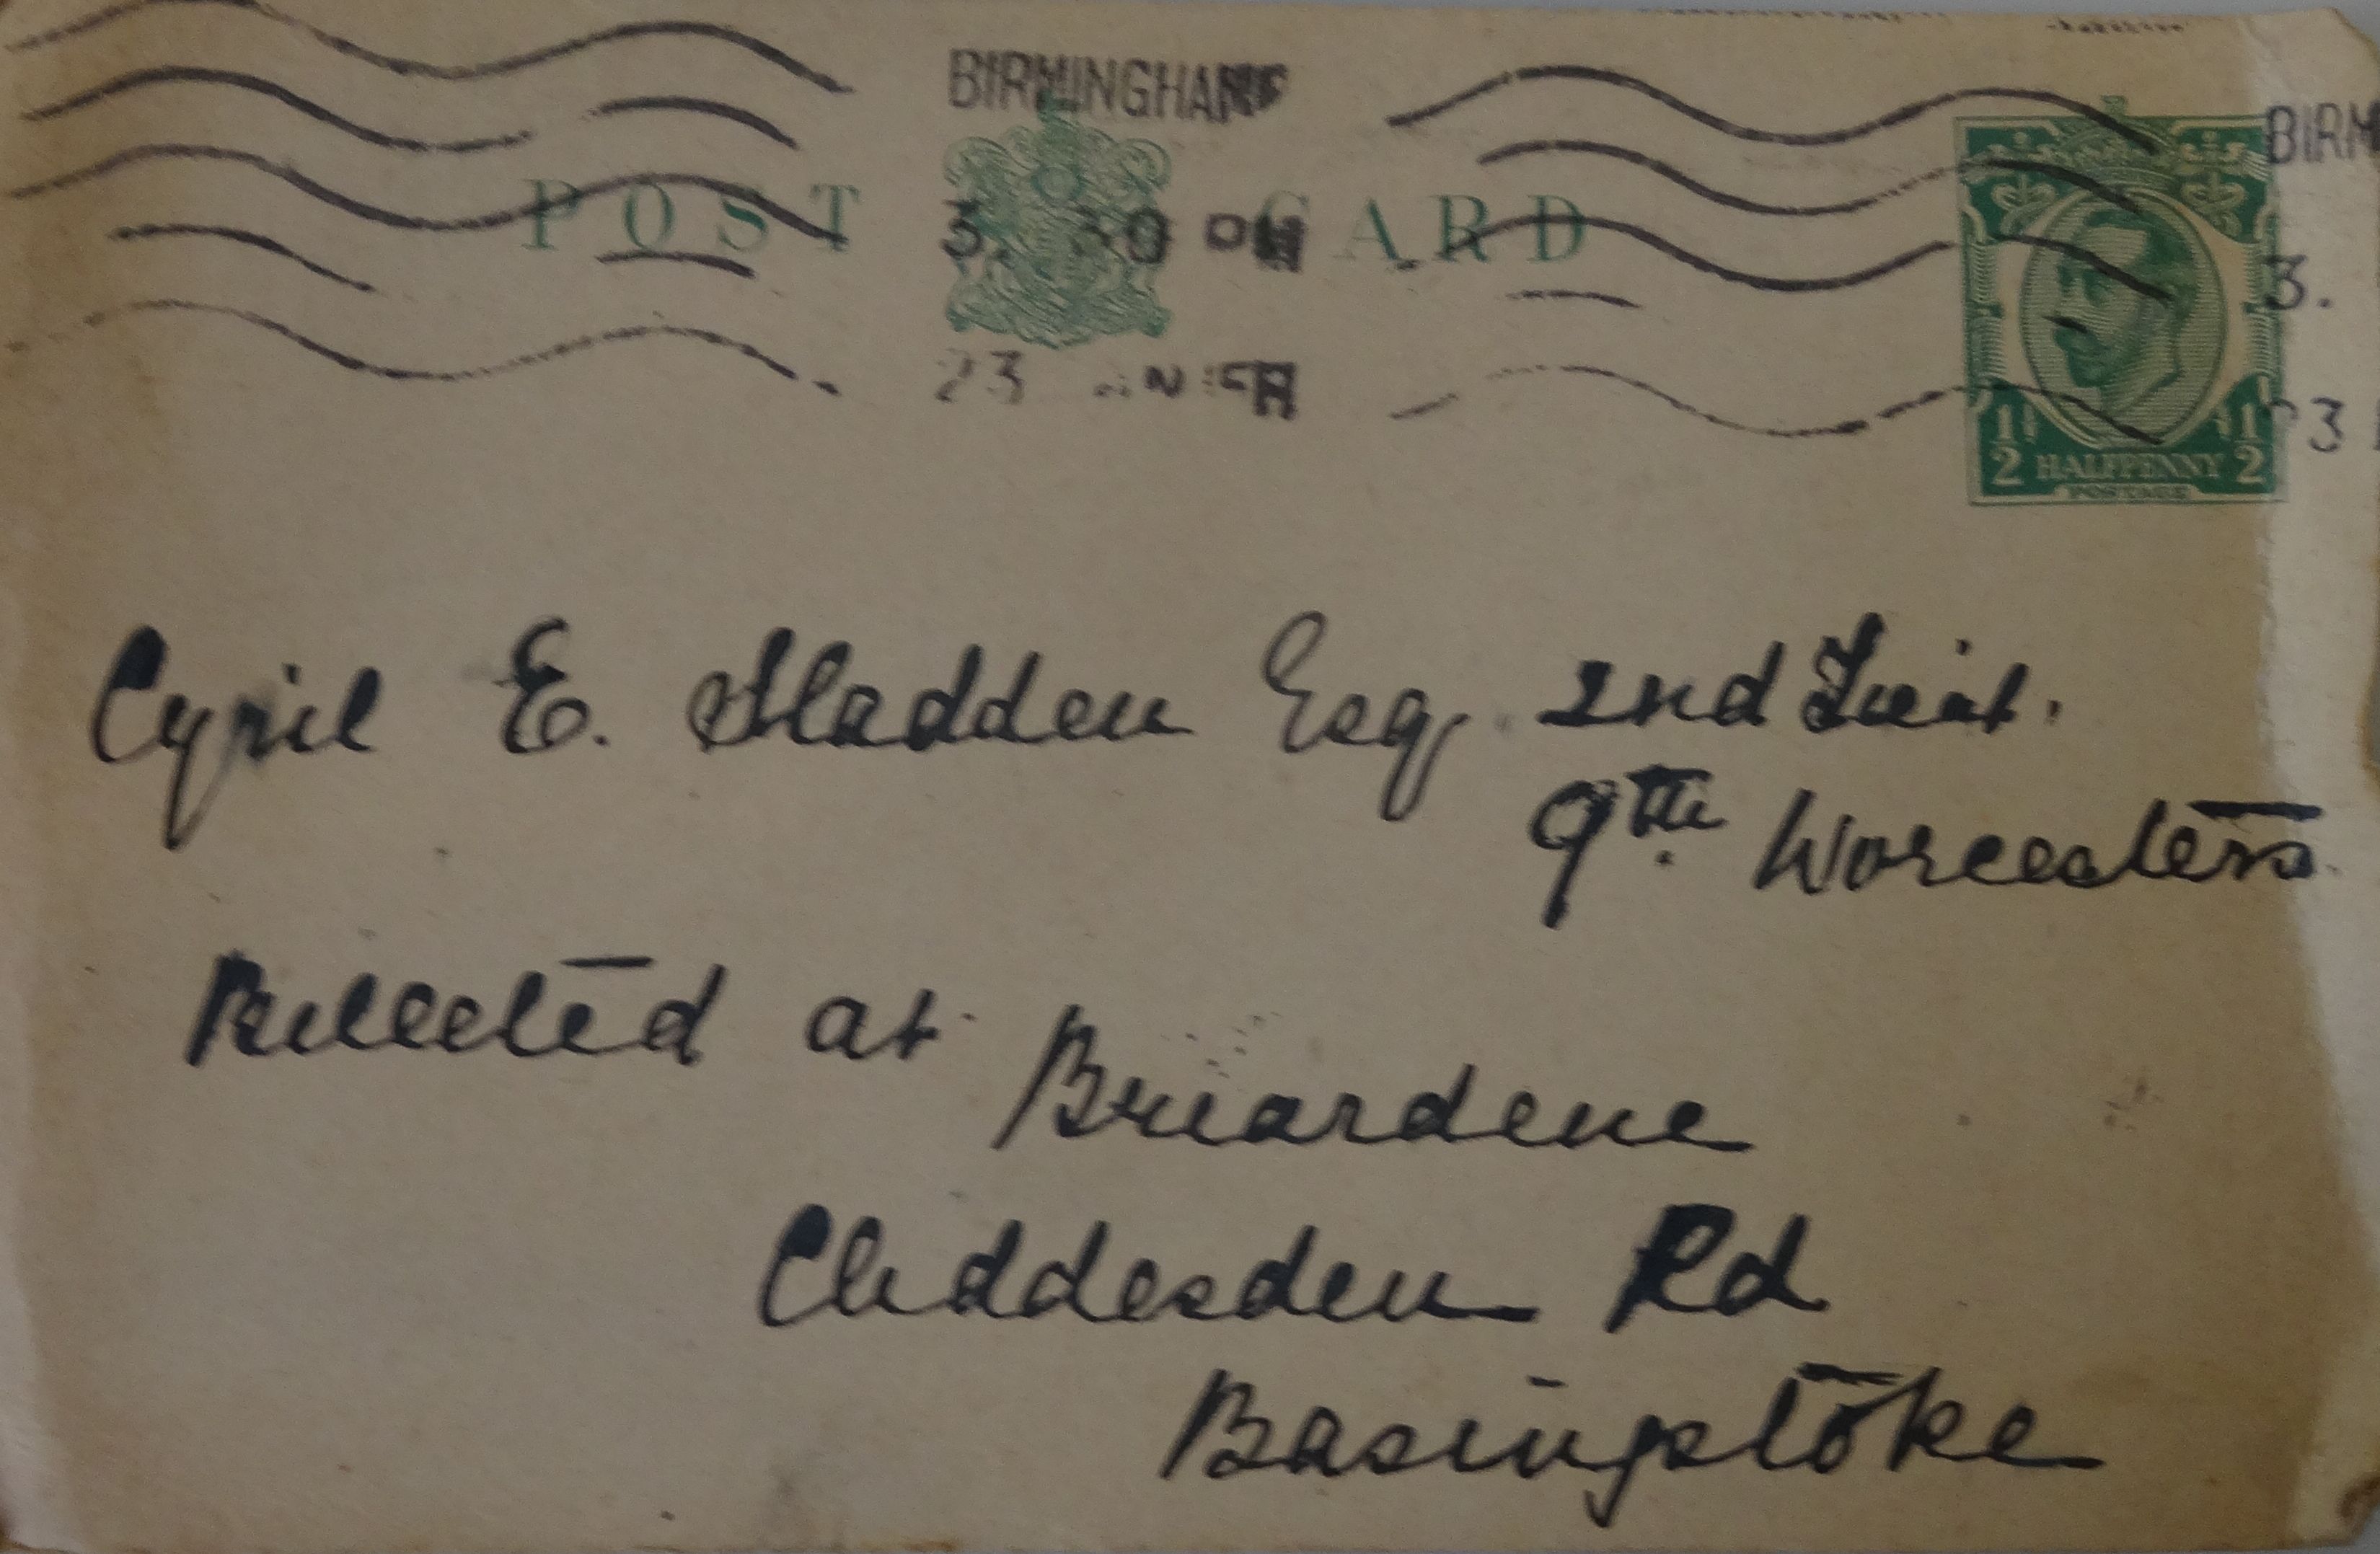 BIRMINGHAM
POST CARD
BIRM
3. 30 PM
3.
23
23
1/2 HALFPENNY 1/2
POSTAGE
Cyril E. Sladden Esq 2nd Lieut.
9th Worcesters
Billeted at
Briardene
Cliddesden Rd
Basingstoke